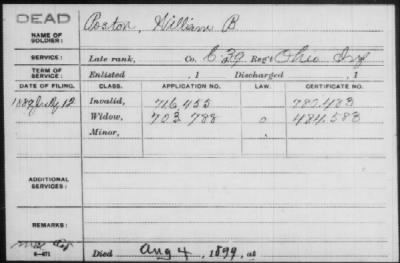 DEAD
NAME OF SOLDIER: Poston, William B
SERVICE: Late rank, Co. C 39 Reg't Ohio Inf
TERM OF SERVICE: Enlisted , 1 Discharged , 1
DATE OF FILING. CLASS. APPLICATION NO. LAW. CERTIFICATE NO.
1889 July 12 Invalid, 716.455 787.483
Widow, 703 788 484.583
Minor,
ADDITIONAL SERVICES:
REMARKS:
Died Aug 4, 1899, at